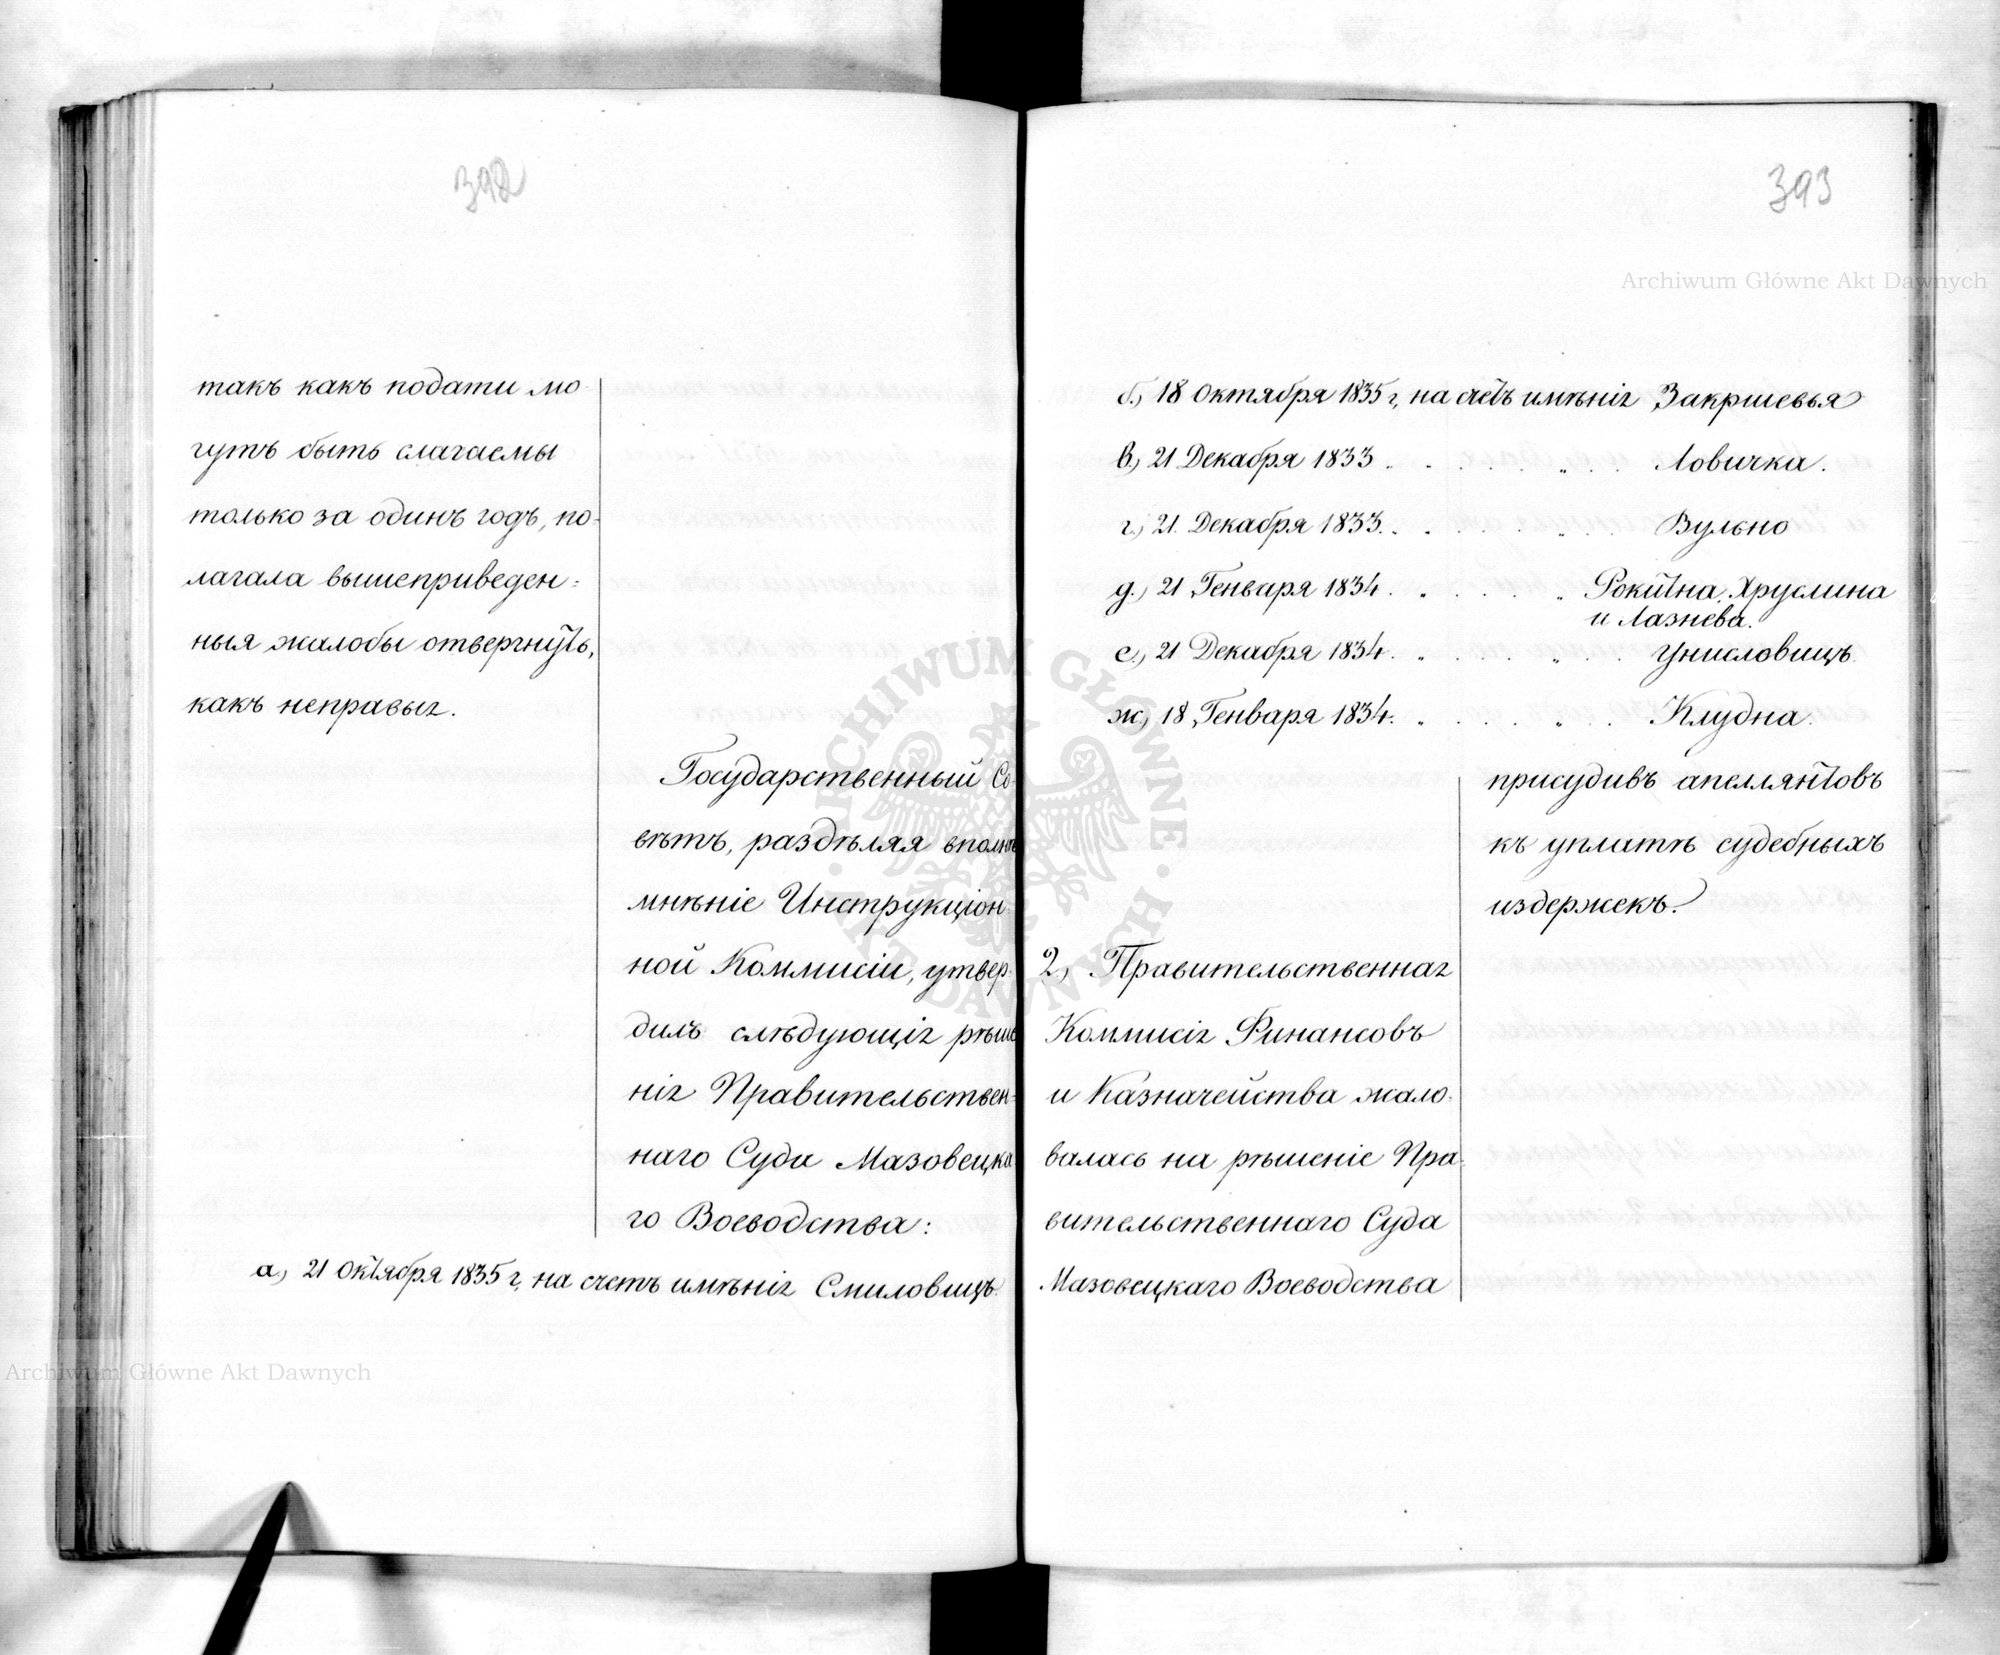 392
такъ какъ подати мо-
гутъ быть слагаемы
только за одинъ годъ, по-
лагала вышеприведен-
ныя жалобы отвергнуть,
какъ неправыя.
Государственный Со-
вѣтъ, раздѣляя вполнѣ
мнѣніе Инструкціон-
ной Коммисіи, утвер-
дилъ слѣдующія рѣше
нія Правительствен-
наго Суда Мазовецка-
го Воеводства:
а, 21 Октября 1835 г, на счетъ имѣнія Смиловицъ.
Archiwum Główne Akt Dawnych
393
Archiwum Główne Akt Dawnych
б., 18 Октября 1835 г, на счетъ имѣнія Закршевья
в., 21 Декабря 1833 . . . . „ . . Ловичка.
г., 21. Декабря 1833. . . . . „ . . Вульно
д., 21 Генваря 1834. . . . . „ Рокитна, Хруслина
и Лазнева.
е., 21 Декабря 1834. . . . . „ . . Униславицъ.
ж, 18 Генваря 1834. . . . . „ . . Клудна.
присудивъ апеллянтовъ
къ уплатѣ судебныхъ
издержекъ.
2, Правительственная
Коммисія Финансовъ
и Казначейства жало-
валась на рѣшеніе Пра-
вительственнаго Суда
Мазовецкаго Воеводства
ARCHIWUM GŁÓWNE AKT DAWNYCH